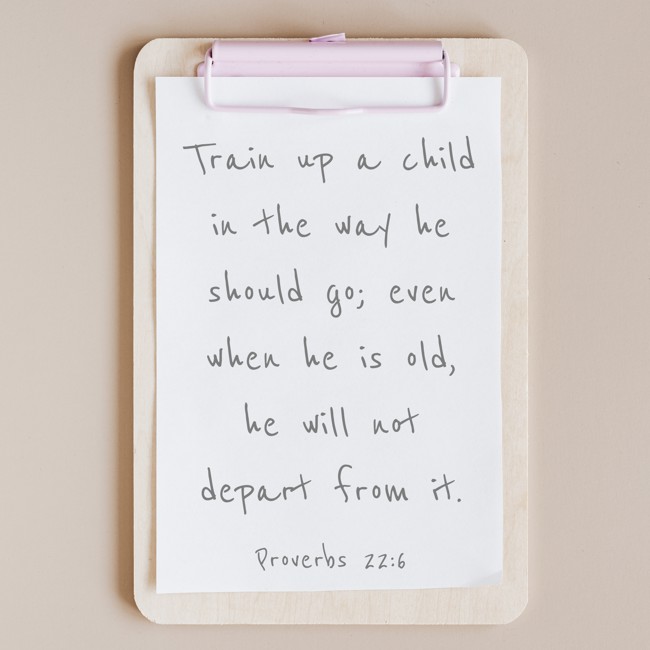 Train up a child
in the way he
should go; even
when he is old,
he will not
depart from it.
Proverbs 22:6